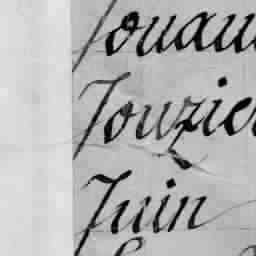 Jouau
Jouzie
Juin